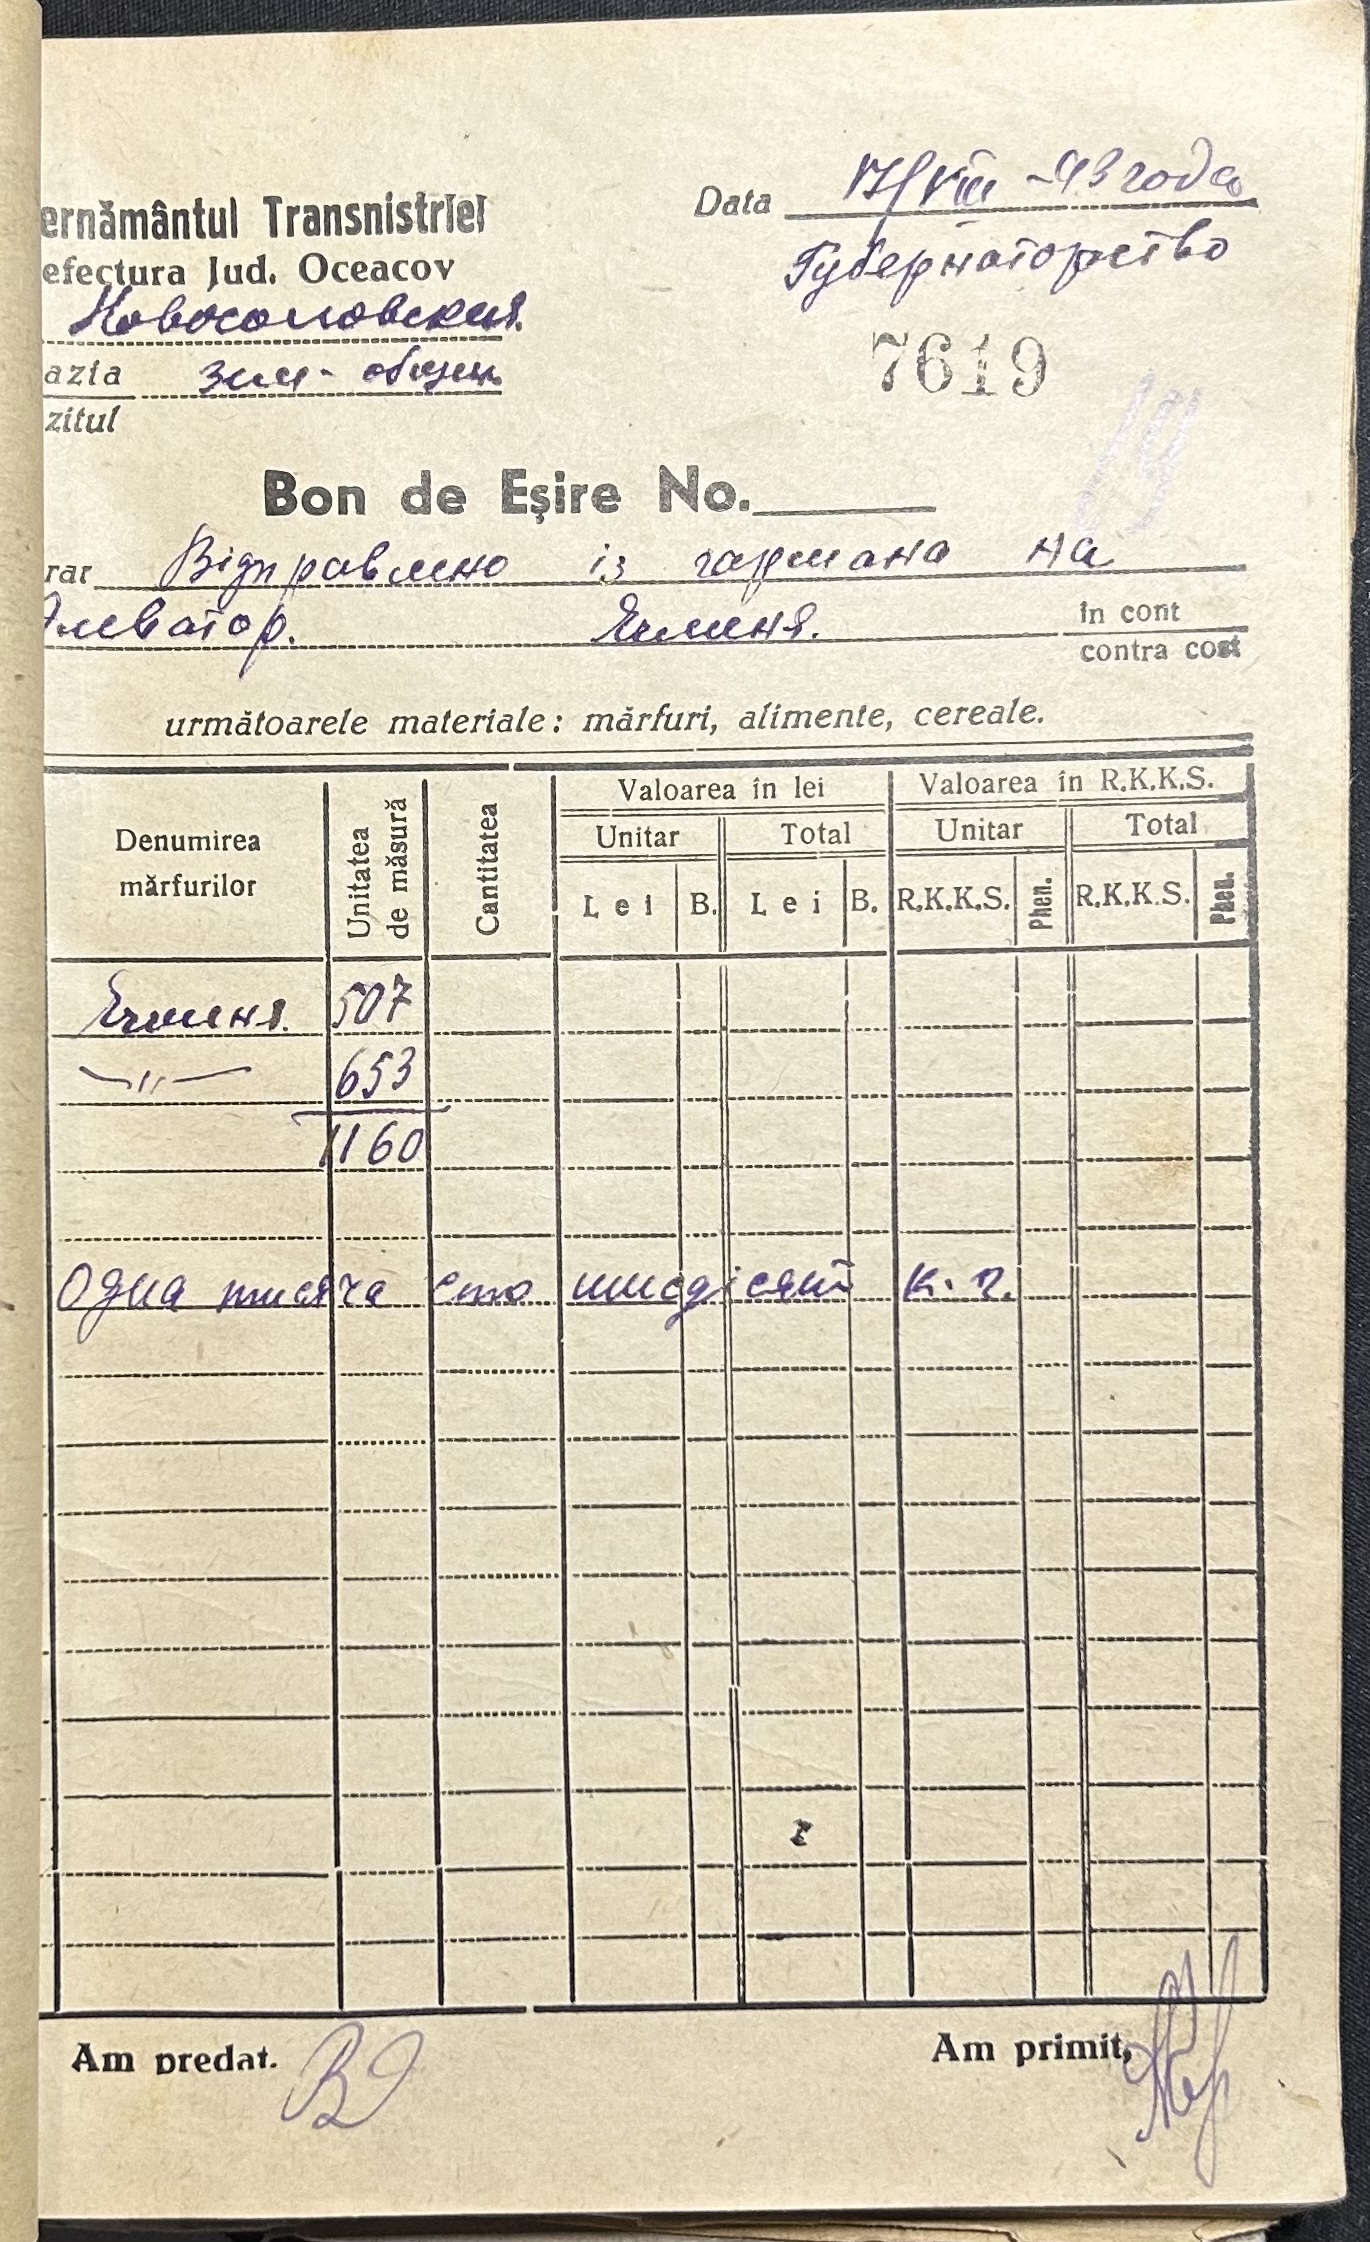 ernământul Transnistriei
Data 17/VIII-43 года
efectura Jud. Oceacov
Губернаторство
Новосоловская
azia зим- общин.
7619
zitul
Bon de Eșire No.
rar Відправлено із гармана на
Элеватор. Ячменя.
în cont
contra cost
următoarele materiale: mărfuri, alimente, cereale.
Denumirea mărfurilor Unitatea de măsură Cantitatea Valoarea în lei Valoarea în R.K.K.S.
Unitar Total Unitar Total
Lei B. Lei B. R.K.K.S. Phen. R.K.K.S. Phen.
Ячменя. 507
—"— 653
1160
Одна тисяча сто шисдісят к.г.
Am predat.
Am primit,